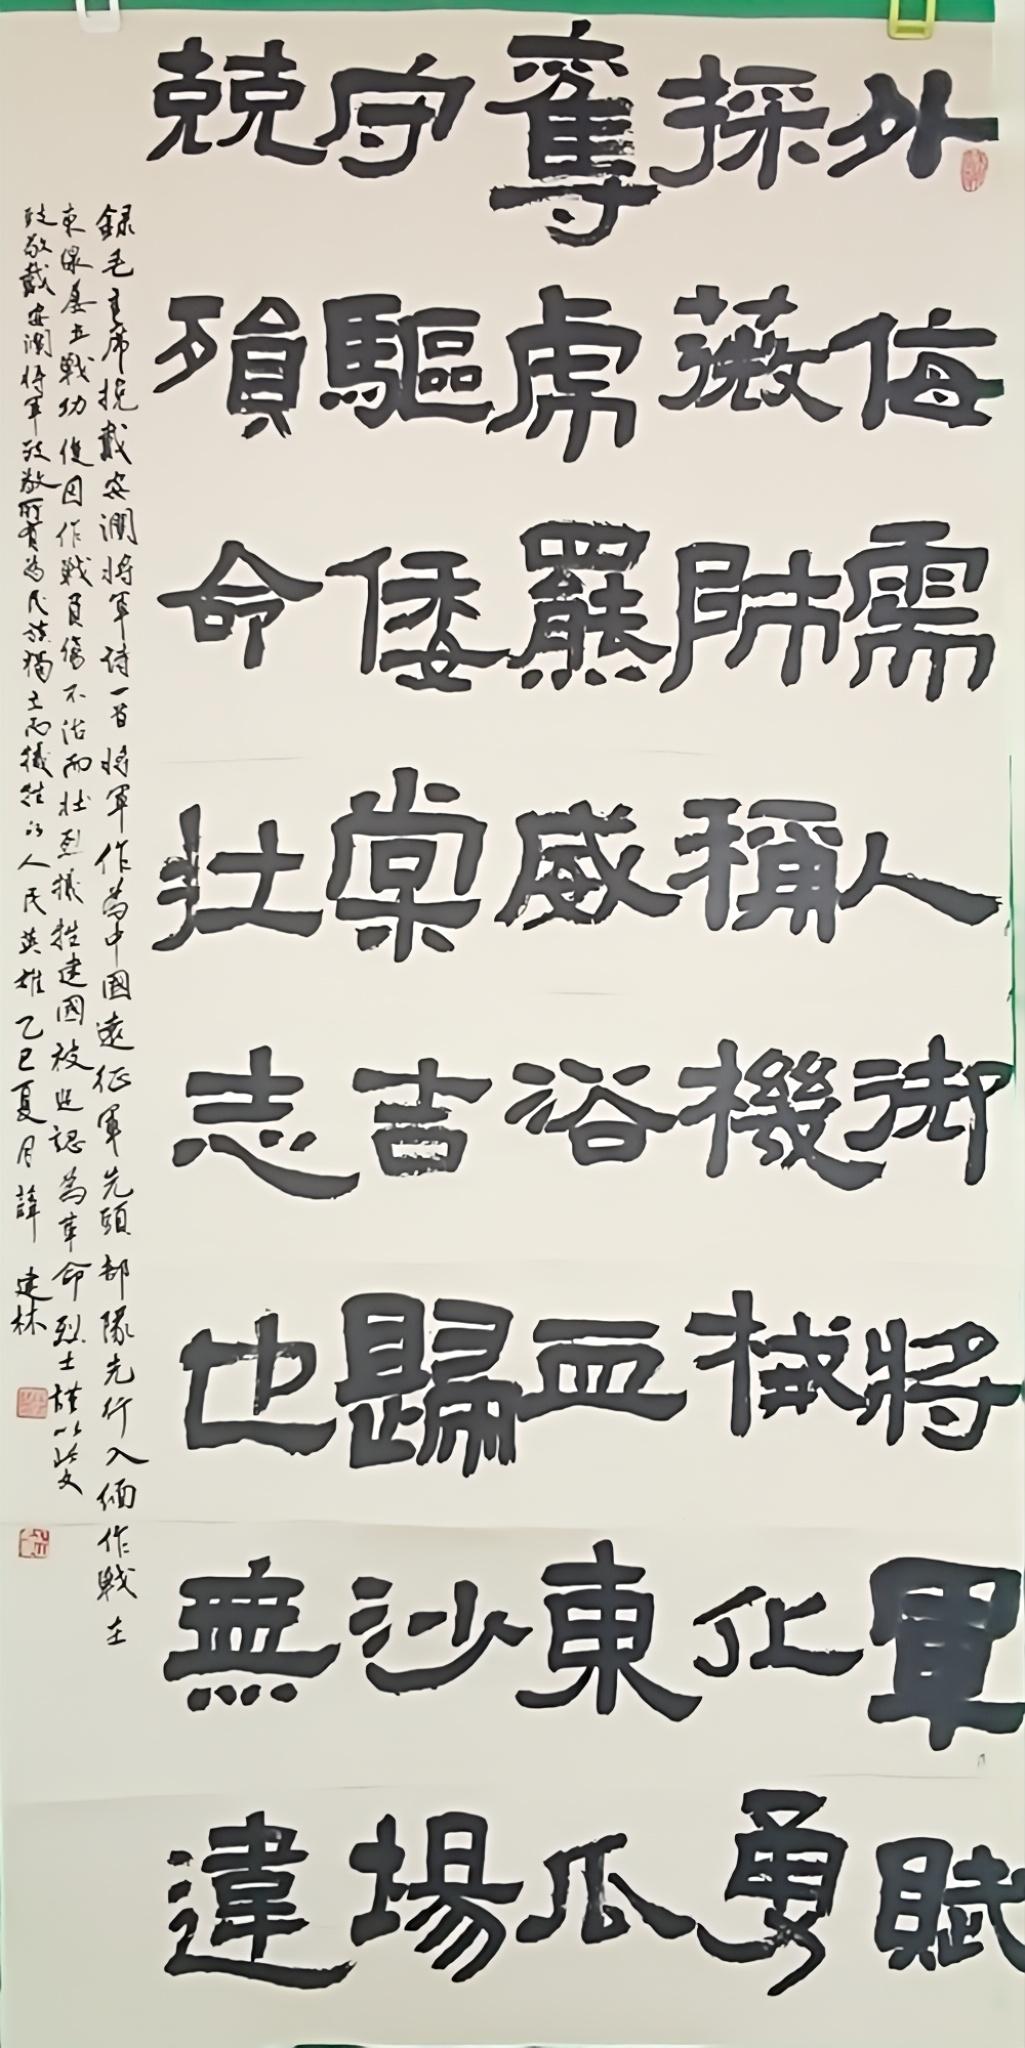 外侮需人御將軍賦
採薇師稱機械化勇
奪虎羆威浴血東瓜
守驅倭棠吉歸沙場
兢殞命壯志也無違
録毛主席挽戴安瀾將軍诗一首將軍作為中國遠征軍先頭部隊先行入缅作戰在
東線屡立戰功後因作戰負傷不治而壯烈犧牲建國被追認為革命烈士謹以此文
致敬戴安瀾將軍致敬所有為民族獨立而犧牲的人民英雄乙巳夏月薛建林